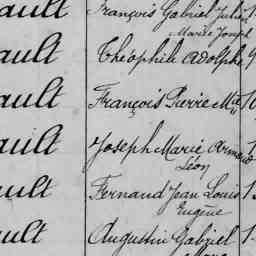 ault François Gabriel Julien
Marie Joseph
ault Théophile Adolphe
ault François Pierre Mie
ault Joseph Marie Armand
Léon
ault Fernand Jean Louis
Eugène
ault Augustin Gabriel